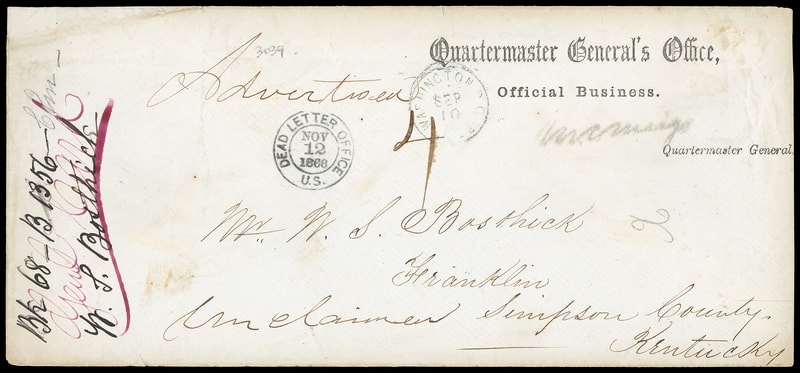 3039.
Quartermaster General's Office,
Official Business.
Advertised
WASHINGTON D.C.
SEP
10
4
DEAD LETTER OFFICE
NOV
12
1868
U.S.
Quartermaster General.
Mr. W. S. Bosthick
Franklin
Unclaimed Simpson County.
Kentucky
Bk 68 – B 1356 –
W. S. Bosthick